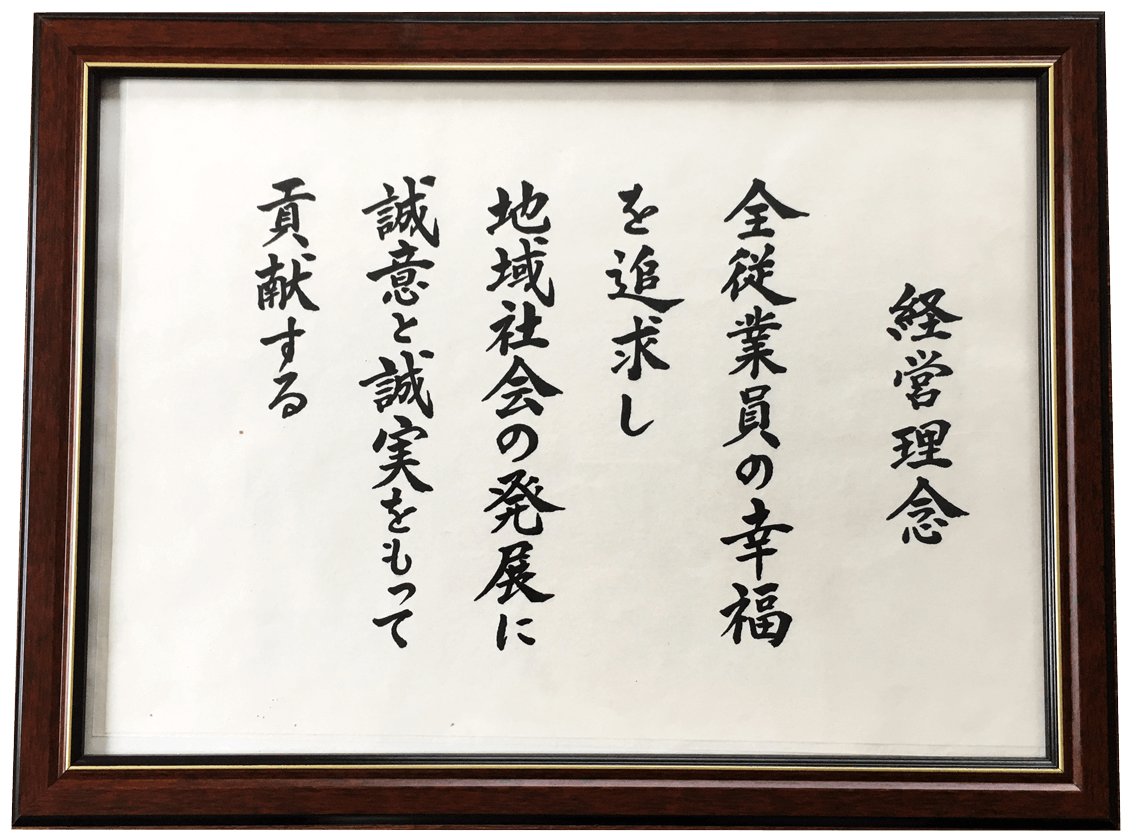 経営理念
全従業員の幸福
を追求し
地域社会の発展に
誠意と誠実をもって
貢献する